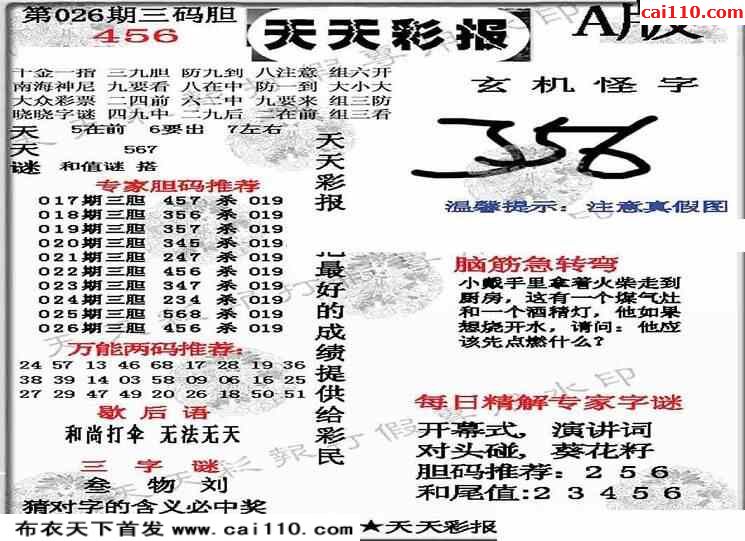 第026期三码胆
456
天天彩报
A版
cai110.com
十金一指 三九胆 防九到 八注意 组六开
南海神尼 九要看 八在中 防一到 大小大
大众彩票 二四前 六二中 九要来 组三防
晓晓字谜 四九中 二九后 二在前 组三看
天天谜
5在前 6要出 7左右
567
和值谜 搭
专家胆码推荐
017期三胆 457 杀 019
018期三胆 356 杀 019
019期三胆 357 杀 019
020期三胆 345 杀 019
021期三胆 247 杀 019
022期三胆 456 杀 019
023期三胆 347 杀 019
024期三胆 234 杀 019
025期三胆 568 杀 019
026期三胆 456 杀 019
万能两码推荐:
24 57 13 46 68 17 28 19 36
38 39 14 03 58 09 06 16 25
27 29 47 49 20 26 18 50 51
歇后语
和尚打伞 无法无天
三字谜
叁 物 刘
猜对字的含义必中奖
天天彩报
把最好的成绩提供给彩民
玄机怪字
356
温馨提示: 注意真假图
脑筋急转弯
小戴手里拿着火柴走到
厨房,这有一个煤气灶
和一个酒精灯,他如果
想烧开水,请问:他应
该先点燃什么?
每日精解专家字谜
开幕式,演讲词
对头碰,葵花籽
胆码推荐:256
和尾值:23456
布衣天下首发 www.cai110.com ★天天彩报